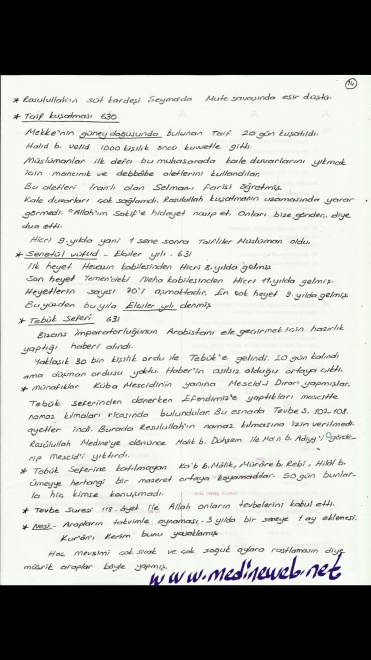 14
* Rasulullah'ın süt kardeşi Şeyma'da Mute savaşında esir düştü.
* Taif kuşatması 630
Mekke'nin güney doğusunda bulunan Taif 20 gün kuşatıldı.
Halid b. Velid 1000 kişilik öncü kuvvetle gitti.
Müslümanlar ilk defa bu muhasarada kale duvarlarını yıkmak
için mancınık ve debbabe aletlerini kullandılar.
Bu aletleri İranlı olan Selmanı Farisi öğretmiş.
Kale duvarları çok sağlamdı. Rasulullah kuşatmanın uzamasında yarar
görmedi. "Allah'ım Sakif'e hidayet nasip et. Onları bize gönder, diye
dua etti.
Hicri 9. yılda yani 1 sene sonra Taifliler Müslüman oldu.
* Senetül vüfud - Elçiler yılı - 631
İlk heyet Hevazın kabilesinden Hicri 8. yılda gelmiş
Son heyet Yemen'deki Neha kabilesinden Hicri 11. yılda gelmiş.
Heyetlerin sayısı 70'i aşmaktadır. En çok heyet 9. yılda gelmiş
Bu yüzden bu yıla Elçiler yılı denmiş
* Tebük Seferi 631
Bizans İmparatorluğunun Arabistanı ele geçirmek için hazırlık
yaptığı haberi alındı.
Yaklaşık 30 bin kişilik ordu ile Tebük'e gelindi. 20 gün kalındı
ama düşman ordusu yoktu. Haber'in asılsız olduğu ortaya çıktı.
* münafıklar Küba Mescidinin yanına Mescid-i Dırar'ı yapmışlar.
Tebük seferinden dönerken Efendimiz'e yaptıkları mescitte
namaz kılmaları ricasında bulundular. Bu esnada Tevbe S. 102-108.
ayetler indi. Burada Rasulullah'ın namaz kılmasına izin verilmedi.
Rasûlullah Medine'ye dönünce Malik b. Duhşem ile Ma'n b. Adiyy'i gönde-
rip Mescid'i yıktırdı.
* Tebük Seferine katılmayan Ka'b b. Mâlik, Mürâre b. Rebi, Hilâl b.
Ümeyye herhangi bir mazeret ortaya koyamadılar. 50 gün bunlar-
la hiç kimse konuşmadı.
* Tevbe Suresi 118. ayet ile Allah onların tevbelerini kabul etti.
* Nesi - Arapların takvimle oynaması. 3 yılda bir seneye 1 ay eklenesi.
Kur'ân'ı Kerim bunu yasaklamış.
Hac mevsimi çok sıcak ve çok soğuk aylara rastlamasın diye
müşrik araplar böyle yapmış.
www.medineweb.net